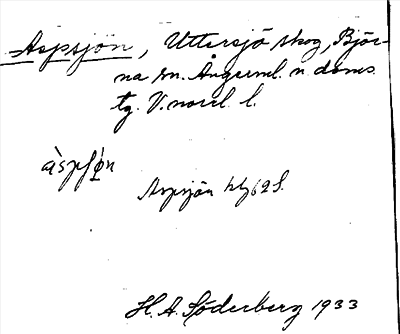 Aspsjön, Uttersjö skog, Björ-
na sn. Ångerml. n. doms.
tg. V.norrl. l.
àspʃø̀n
Aspsjön hly62S.
H. A. Söderberg 1933